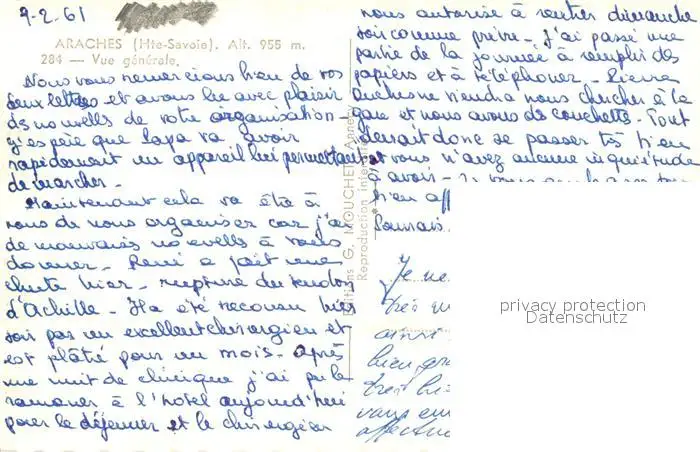 9-2.61
ARACHES (Hte-Savoie). Alt. 955 m.
284 — Vue générale.
Nous vous remercions bien de vos
deux lettres et avons lu avec plaisir
des nouvelles de votre organisation -
j'espère que Papa va avoir
rapidement un appareil lui permettant
de marcher -
Maintenant cela va être à
nous de nous organiser car j'ai
de mauvaises nouvelles à vous
donner - René a fait une
chute hier - rupture du tendon
d'Achille - Il a été reconnu hier
soir par un excellent chirurgien et
est plâtré pour un mois - après
une nuit de clinique j'ai pu le
ramener à l'hôtel aujourd'hui
pour le déjeuner et le chirurgien
Editions G. MOUCHET, Annecy
Reproduction
nous autorise à rentrer dimanche
soir comme prévu - J'ai passé une
partie de la journée à remplir des
papiers et à téléphoner - Pierre
Duchesne viendra nous chercher à la
gare et nous avons des couchettes - Tout
devrait donc se passer très bien
et vous n'avez aucune inquiétude
à avoir -
bien aff
Je ne
très
ainsi
bien
très
vous em
affectu
privacy protection
Datenschutz